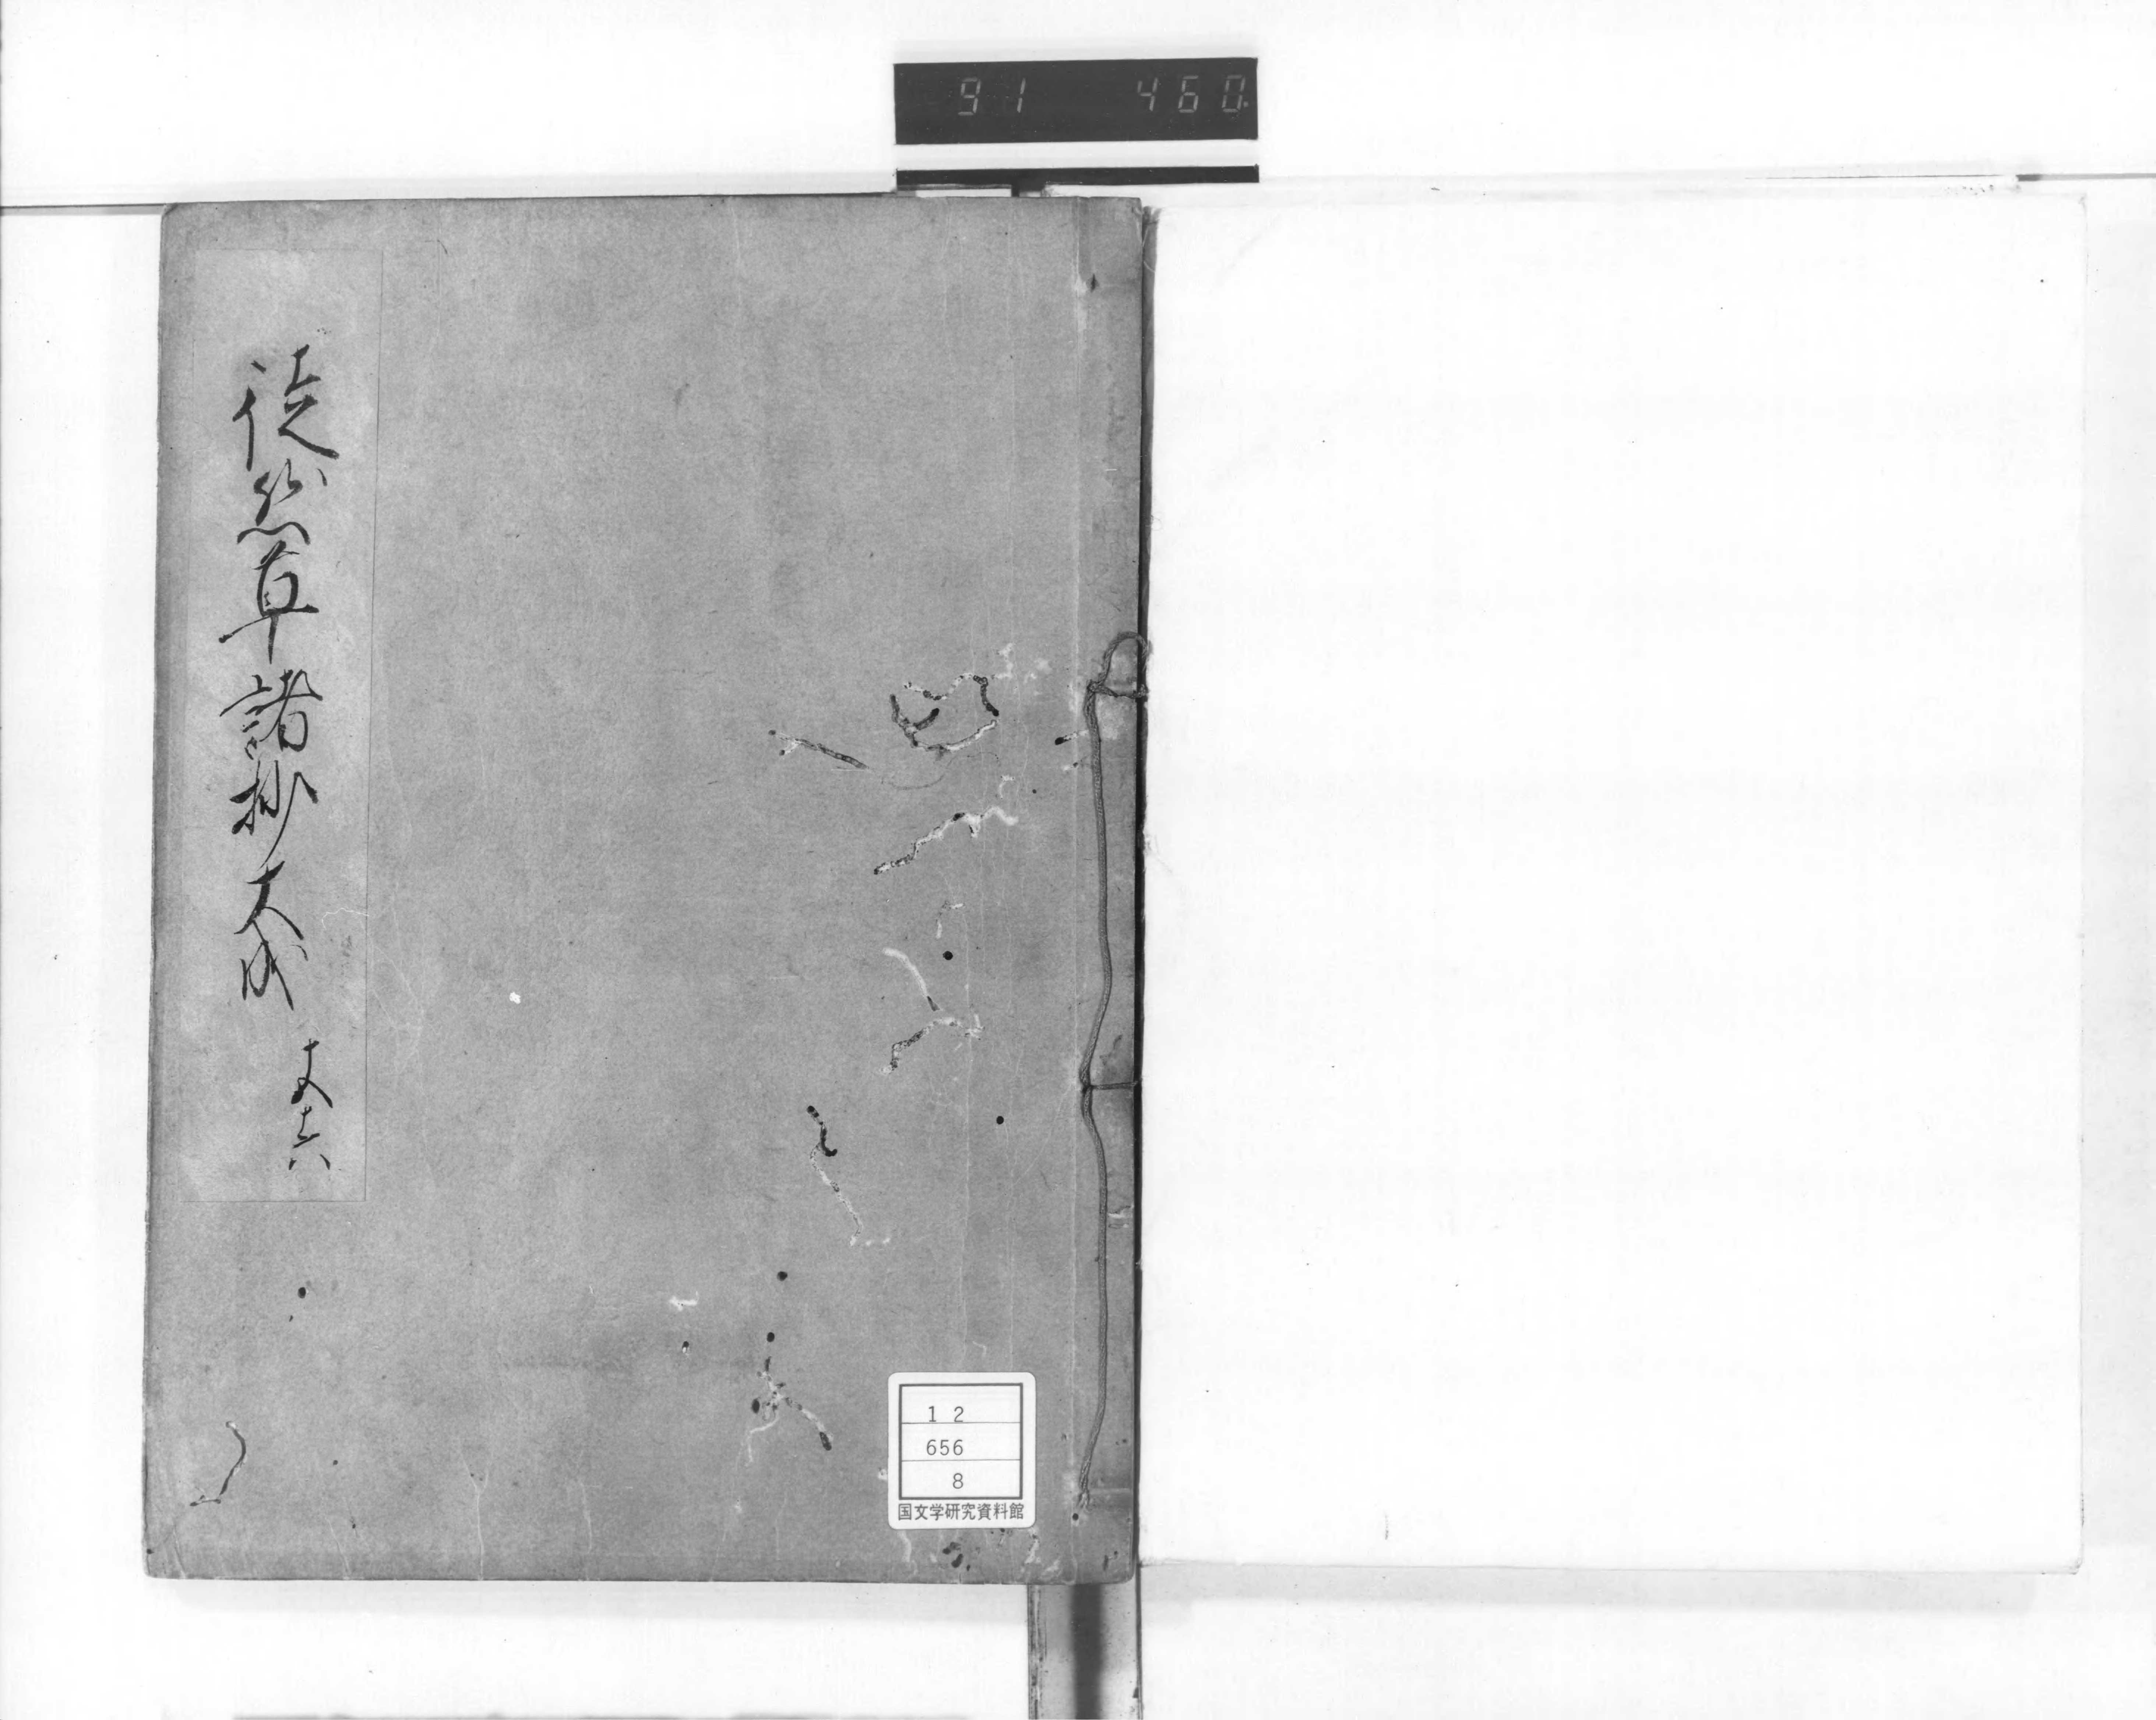 91 460
徒然草諸抄大成
十五之六
12
656
8
国文学研究資料館